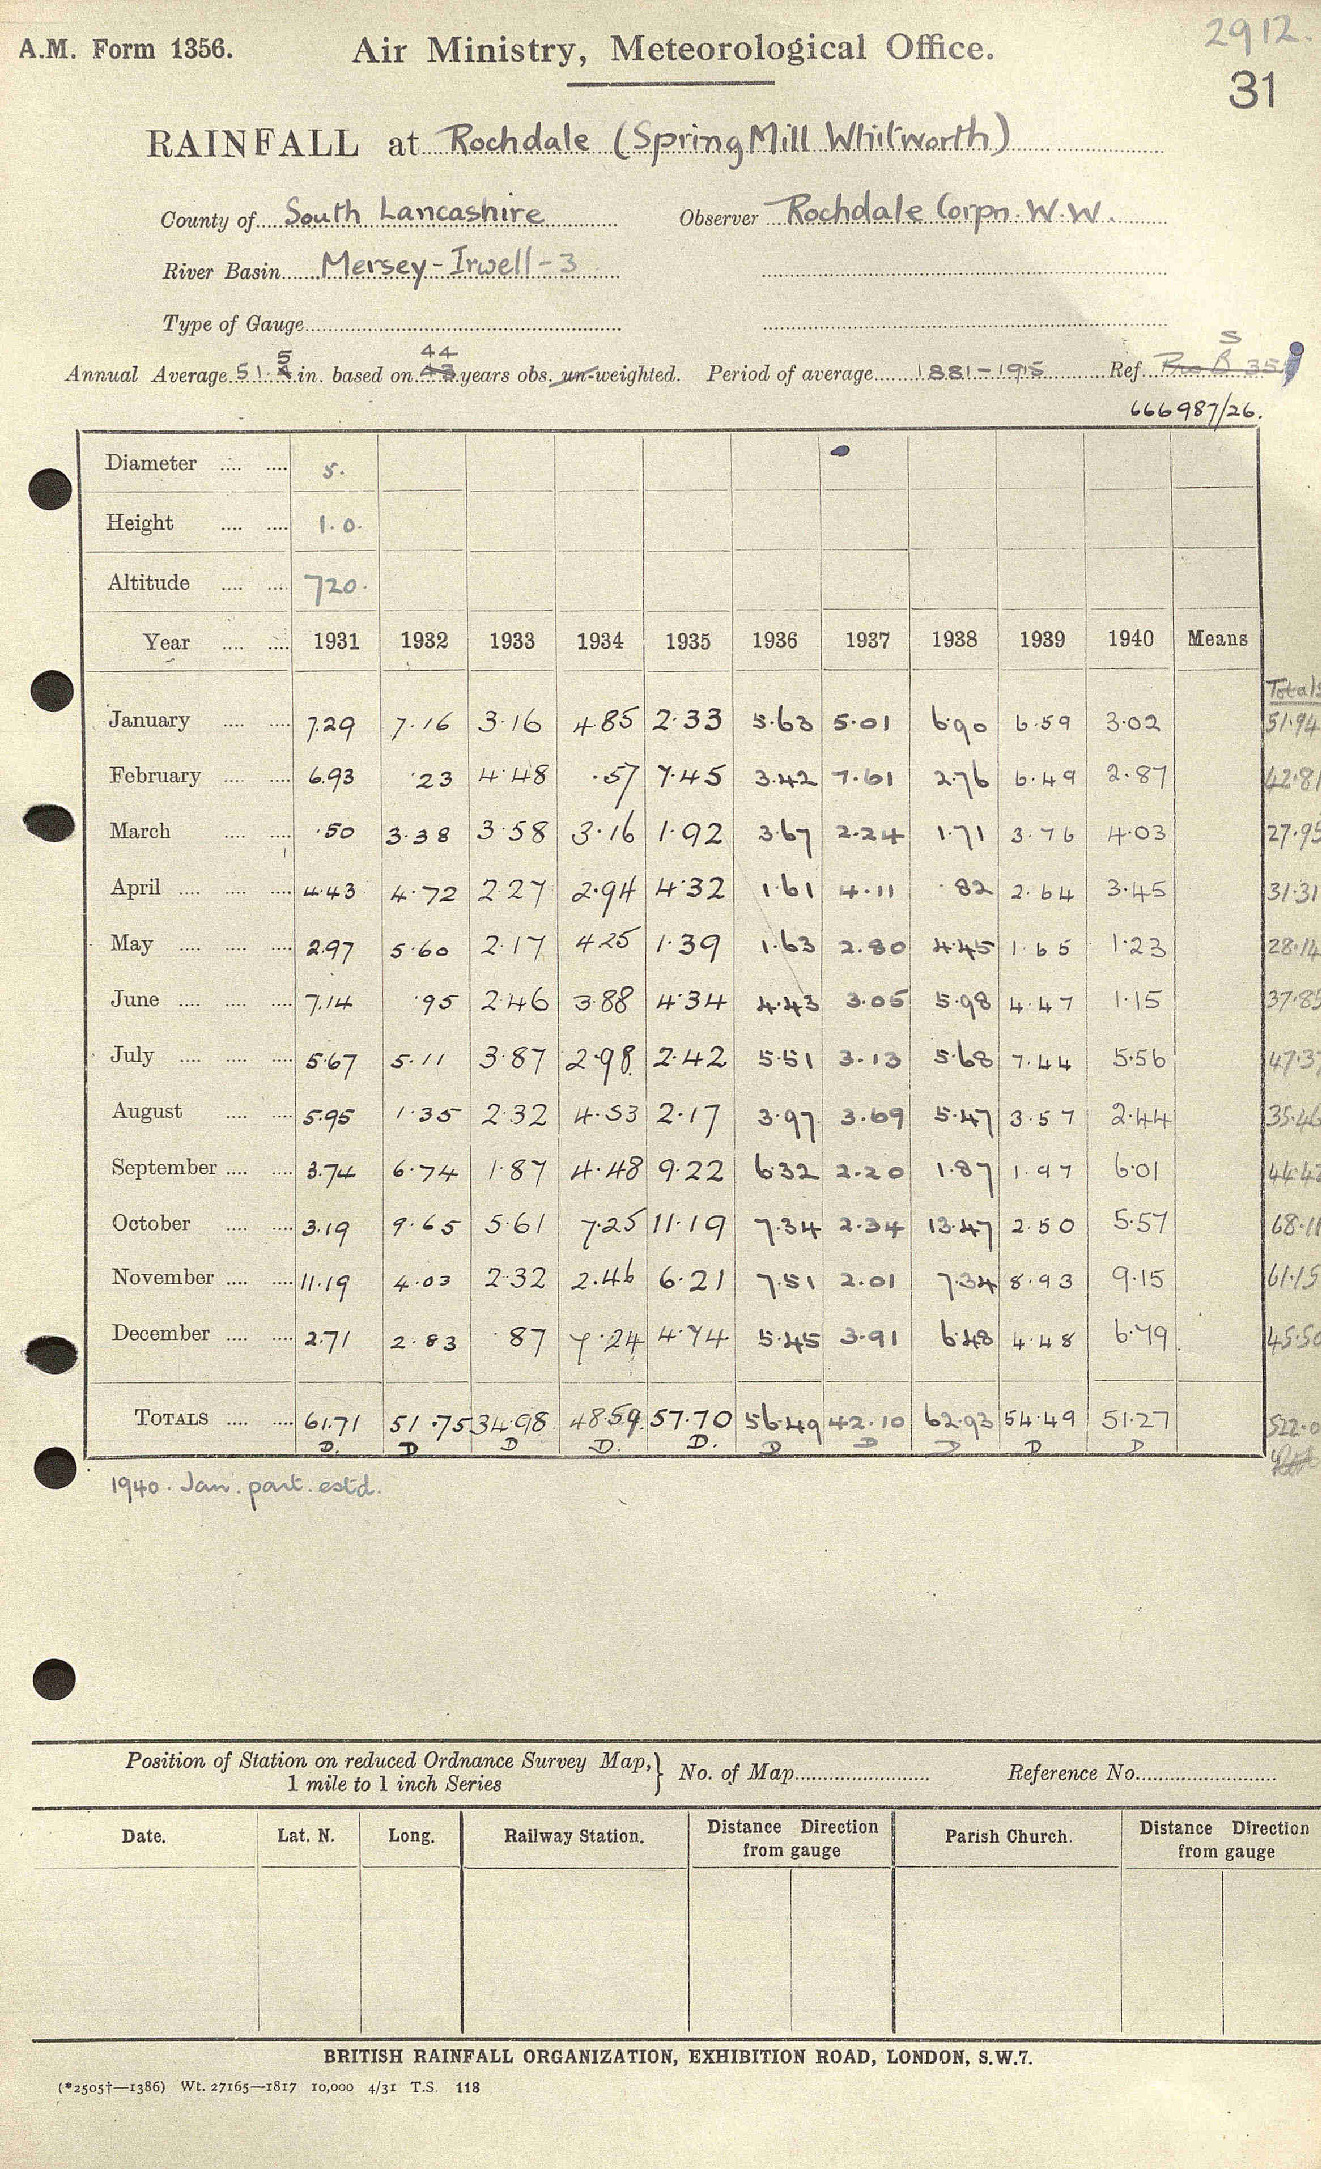 2912.
A.M. Form 1356. Air Ministry, Meteorological Office.
31
RAINFALL at Rochdale (Spring Mill Whitworth)
County of South Lancashire Observer Rochdale Corpn. W.W.
River Basin Mersey-Irwell-3
Type of Gauge
5 44 S
Annual Average 51. in. based on 43 years obs. un-weighted. Period of average 1881-1915 Ref.
666987/26.
Diameter 5.
Height 1.0.
Altitude 720.
Year 1931 1932 1933 1934 1935 1936 1937 1938 1939 1940 Means
Totals
January 7.29 7.16 3.16 4.85 2.33 5.63 5.01 6.90 6.59 3.02 51.94
February 6.93 .23 4.48 .57 7.45 3.42 7.61 2.76 6.49 2.87 42.81
March .50 3.38 3.58 3.16 1.92 3.67 2.24 1.71 3.76 4.03 27.95
April 4.43 4.72 2.27 2.94 4.32 1.61 4.11 .82 2.64 3.45 31.31
May 2.97 5.60 2.17 4.25 1.39 1.63 2.80 4.45 1.65 1.23 28.14
June 7.14 .95 2.46 3.88 4.34 4.43 3.05 5.98 4.47 1.15 37.85
July 5.67 5.11 3.87 2.98 2.42 5.51 3.13 5.68 7.44 5.56 47.37
August 5.95 1.35 2.32 4.53 2.17 3.97 3.69 5.47 3.57 2.44 35.46
September 3.74 6.74 1.87 4.48 9.22 6.32 2.20 1.87 1.97 6.01 44.42
October 3.19 9.65 5.61 7.25 11.19 7.34 2.34 13.47 2.50 5.57 68.11
November 11.19 4.03 2.32 2.46 6.21 7.51 2.01 7.34 8.93 9.15 61.15
December 2.71 2.83 .87 7.24 4.74 5.45 3.91 6.48 4.48 6.79 45.50
TOTALS 61.71 51.75 34.98 48.59 57.70 56.49 42.10 62.93 54.49 51.27 522.0
D. D D D. D. D D D D D
1940. Jan. part. estd.
Position of Station on reduced Ordnance Survey Map, } No. of Map Reference No.
1 mile to 1 inch Series
Date. Lat. N. Long. Railway Station. Distance Direction from gauge Parish Church. Distance Direction from gauge
BRITISH RAINFALL ORGANIZATION, EXHIBITION ROAD, LONDON, S.W.7.
(*2505†—1386) Wt. 27165—1817 10,000 4/31 T.S. 118